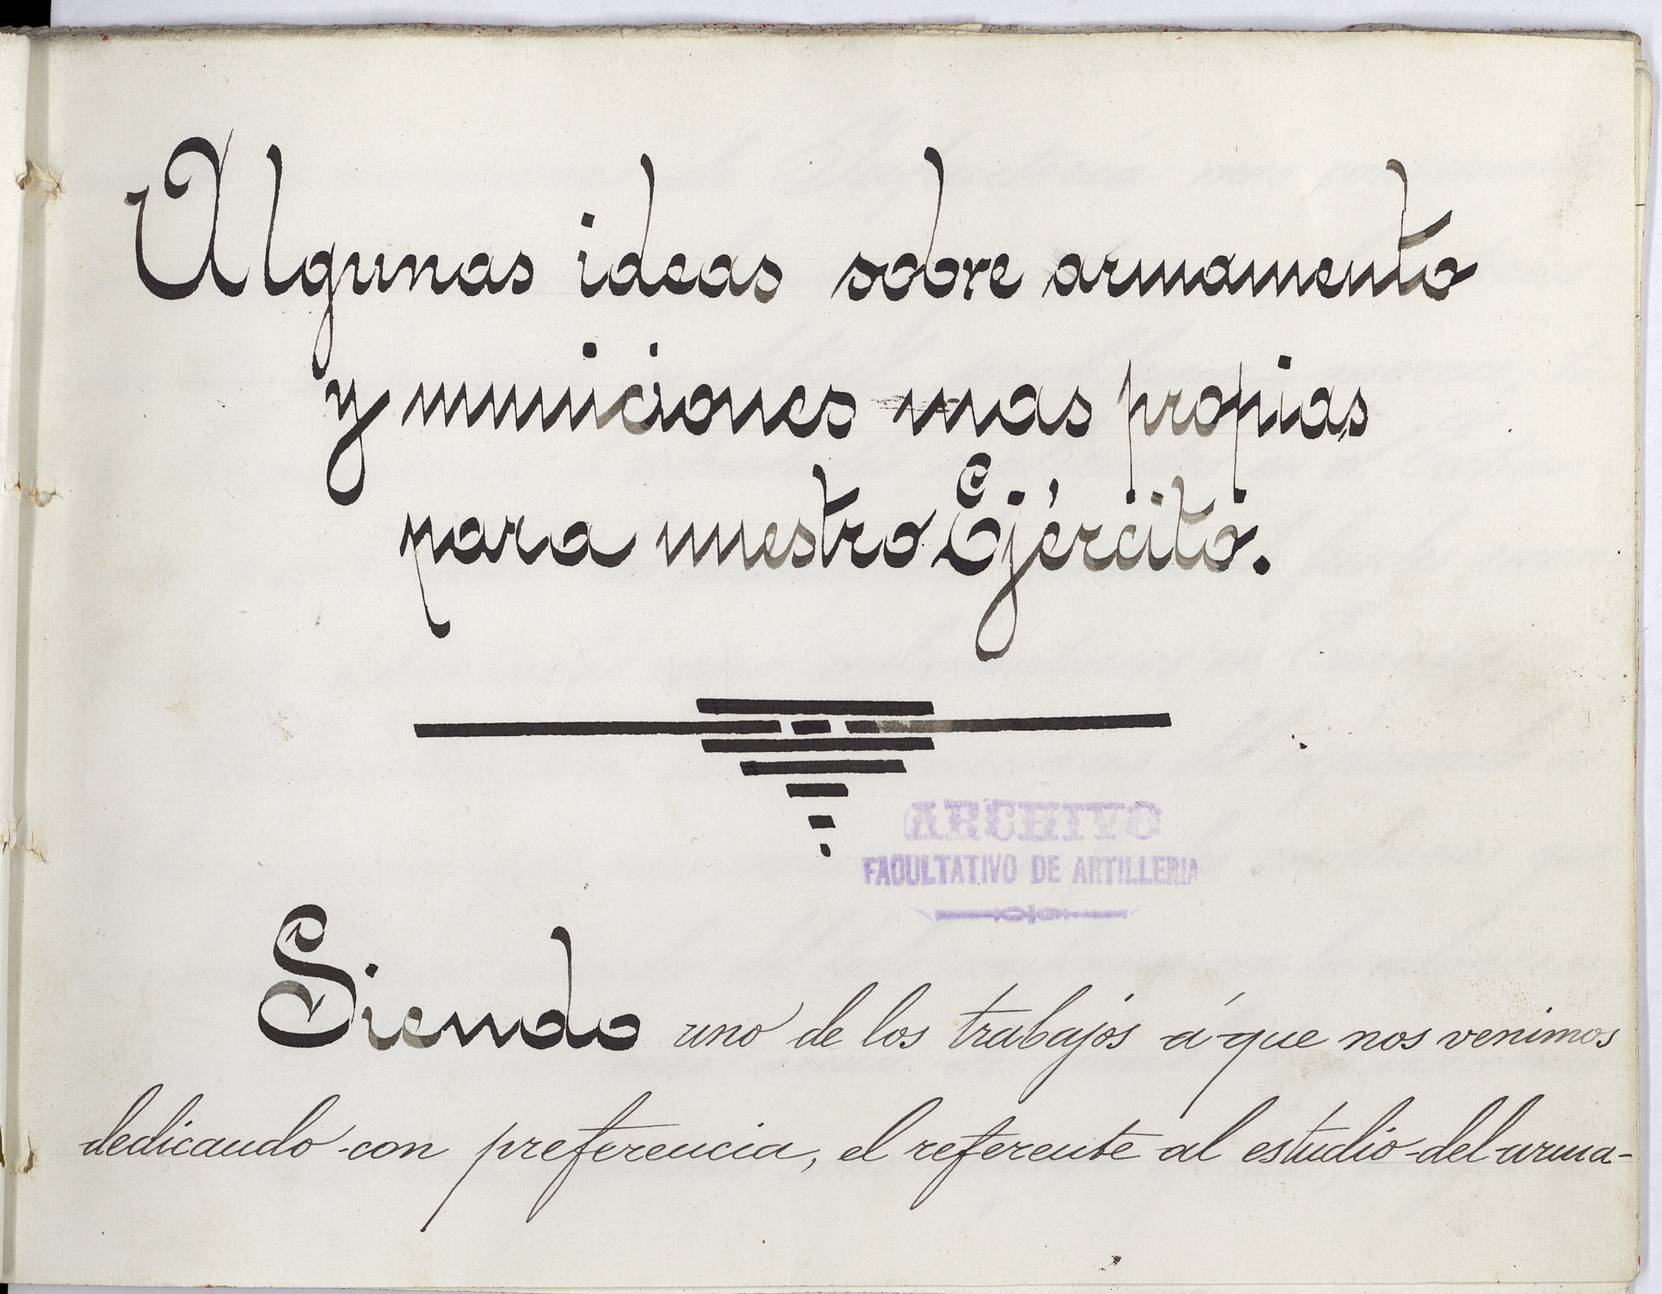 Algunas ideas sobre armamento
y municiones mas propias
para nuestro Ejército.
ARCHIVO
FACULTATIVO DE ARTILLERIA
Siendo uno de los trabajos á que nos venimos
dedicando con preferencia, el referente al estudio del arma-